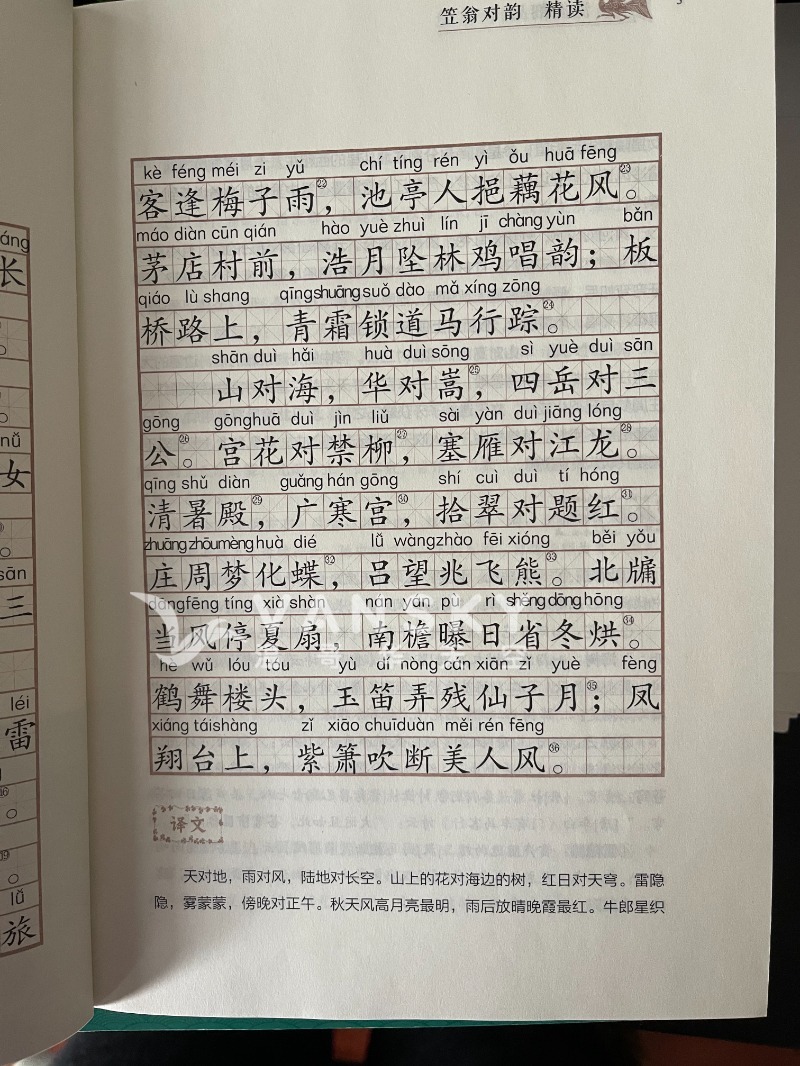 笠翁对韵 精读
kè féng méi zi yǔ chí tíng rén yì ǒu huā fēng
客逢梅子雨㉒，池亭人挹藕花风㉓。
máo diàn cūn qián hào yuè zhuì lín jī chàng yùn bǎn
茅店村前，浩月坠林鸡唱韵；板
qiáo lù shang qīng shuāng suǒ dào mǎ xíng zōng
桥路上，青霜锁道马行踪㉔。
shān duì hǎi huà duì sōng sì yuè duì sān
山对海，华对嵩㉕，四岳对三
gōng gōng huā duì jìn liǔ sài yàn duì jiāng lóng
公㉖。宫花对禁柳㉗，塞雁对江龙㉘。
qīng shǔ diàn guǎng hán gōng shí cuì duì tí hóng
清暑殿㉙，广寒宫㉚，拾翠对题红㉛。
zhuāng zhōu mèng huà dié lǚ wàng zhào fēi xióng běi yǒu
庄周梦化蝶㉜，吕望兆飞熊㉝。北牖
dāng fēng tíng xià shàn nán yán pù rì shěng dōng hōng
当风停夏扇，南檐曝日省冬烘㉞。
hè wǔ lóu tóu yù dí nòng cán xiān zǐ yuè fèng
鹤舞楼头，玉笛弄残仙子月㉟；凤
xiáng tái shàng zǐ xiāo chuī duàn měi rén fēng
翔台上，紫箫吹断美人风㊱。
译文
天对地，雨对风，陆地对长空。山上的花对海边的树，红日对天穹。雷隐
隐，雾蒙蒙，傍晚对正午。秋天风高月亮最明，雨后放晴晚霞最红。牛郎星织
áng
长
nǚ
女
sān
三
léi
雷
⑯
⑲
lǚ
旅
YANSKY